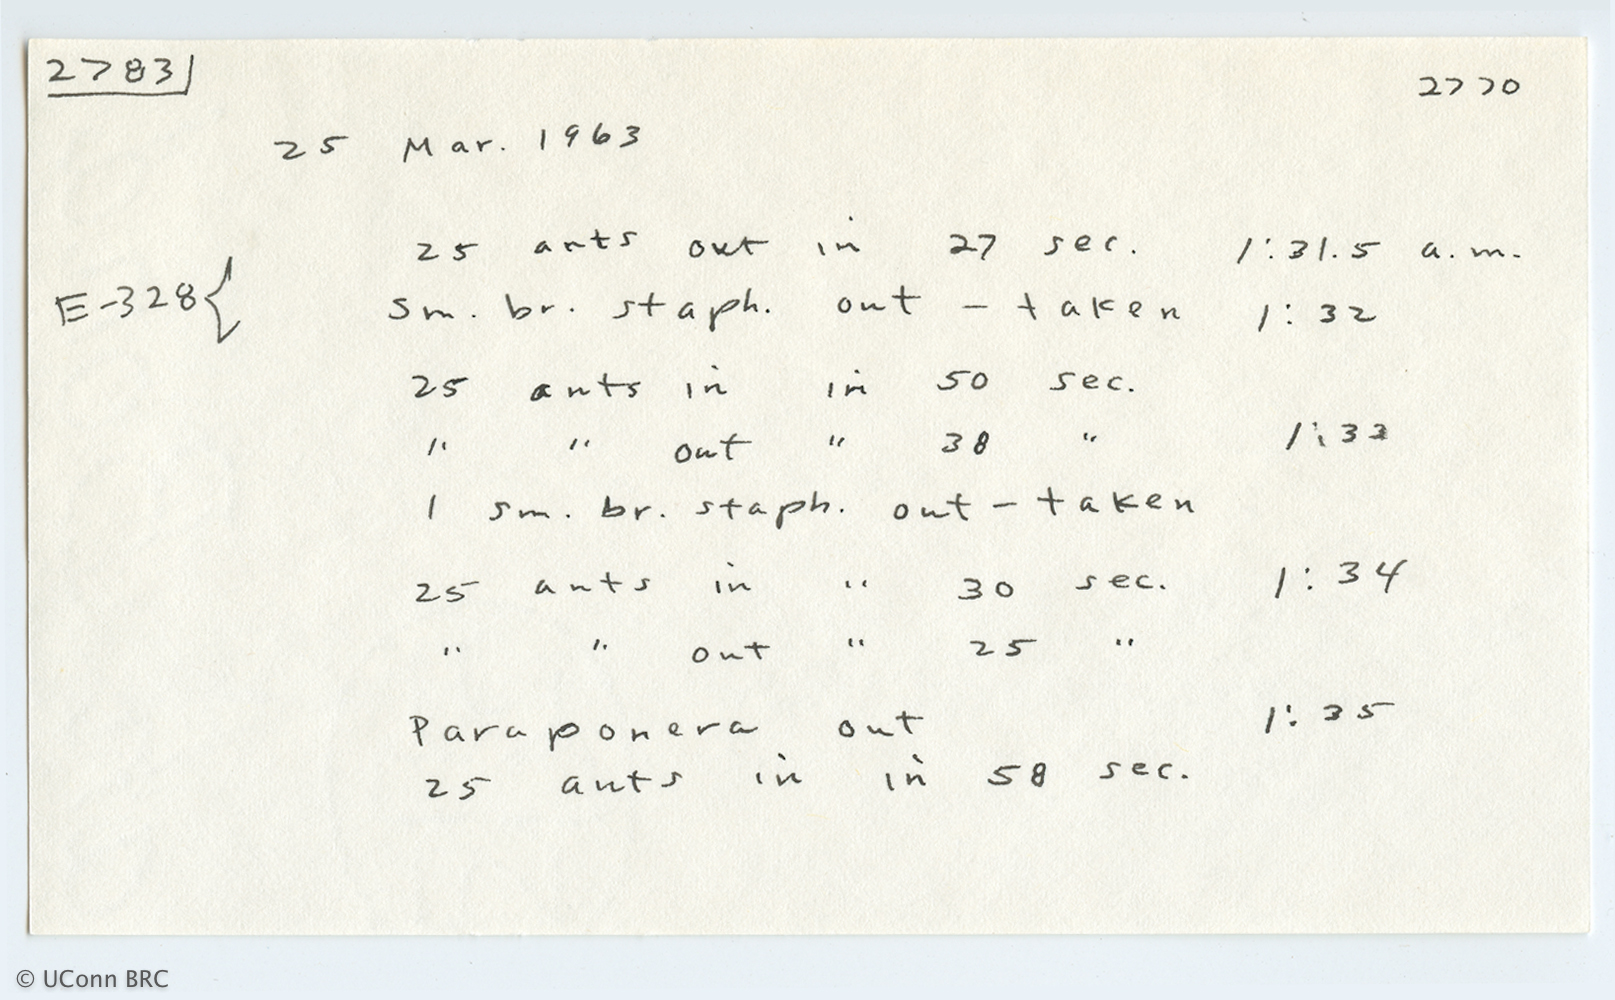 2783 2770
25 Mar. 1963
25 ants out in 27 sec. 1:31.5 a.m.
E-328{ Sm. br. staph. out - taken 1:32
25 ants in in 50 sec.
" " out " 38 " 1:33
1 sm. br. staph. out - taken
25 ants in " 30 sec. 1:34
" " out " 25 "
Paraponera out 1:35
25 ants in in 58 sec.
© UConn BRC